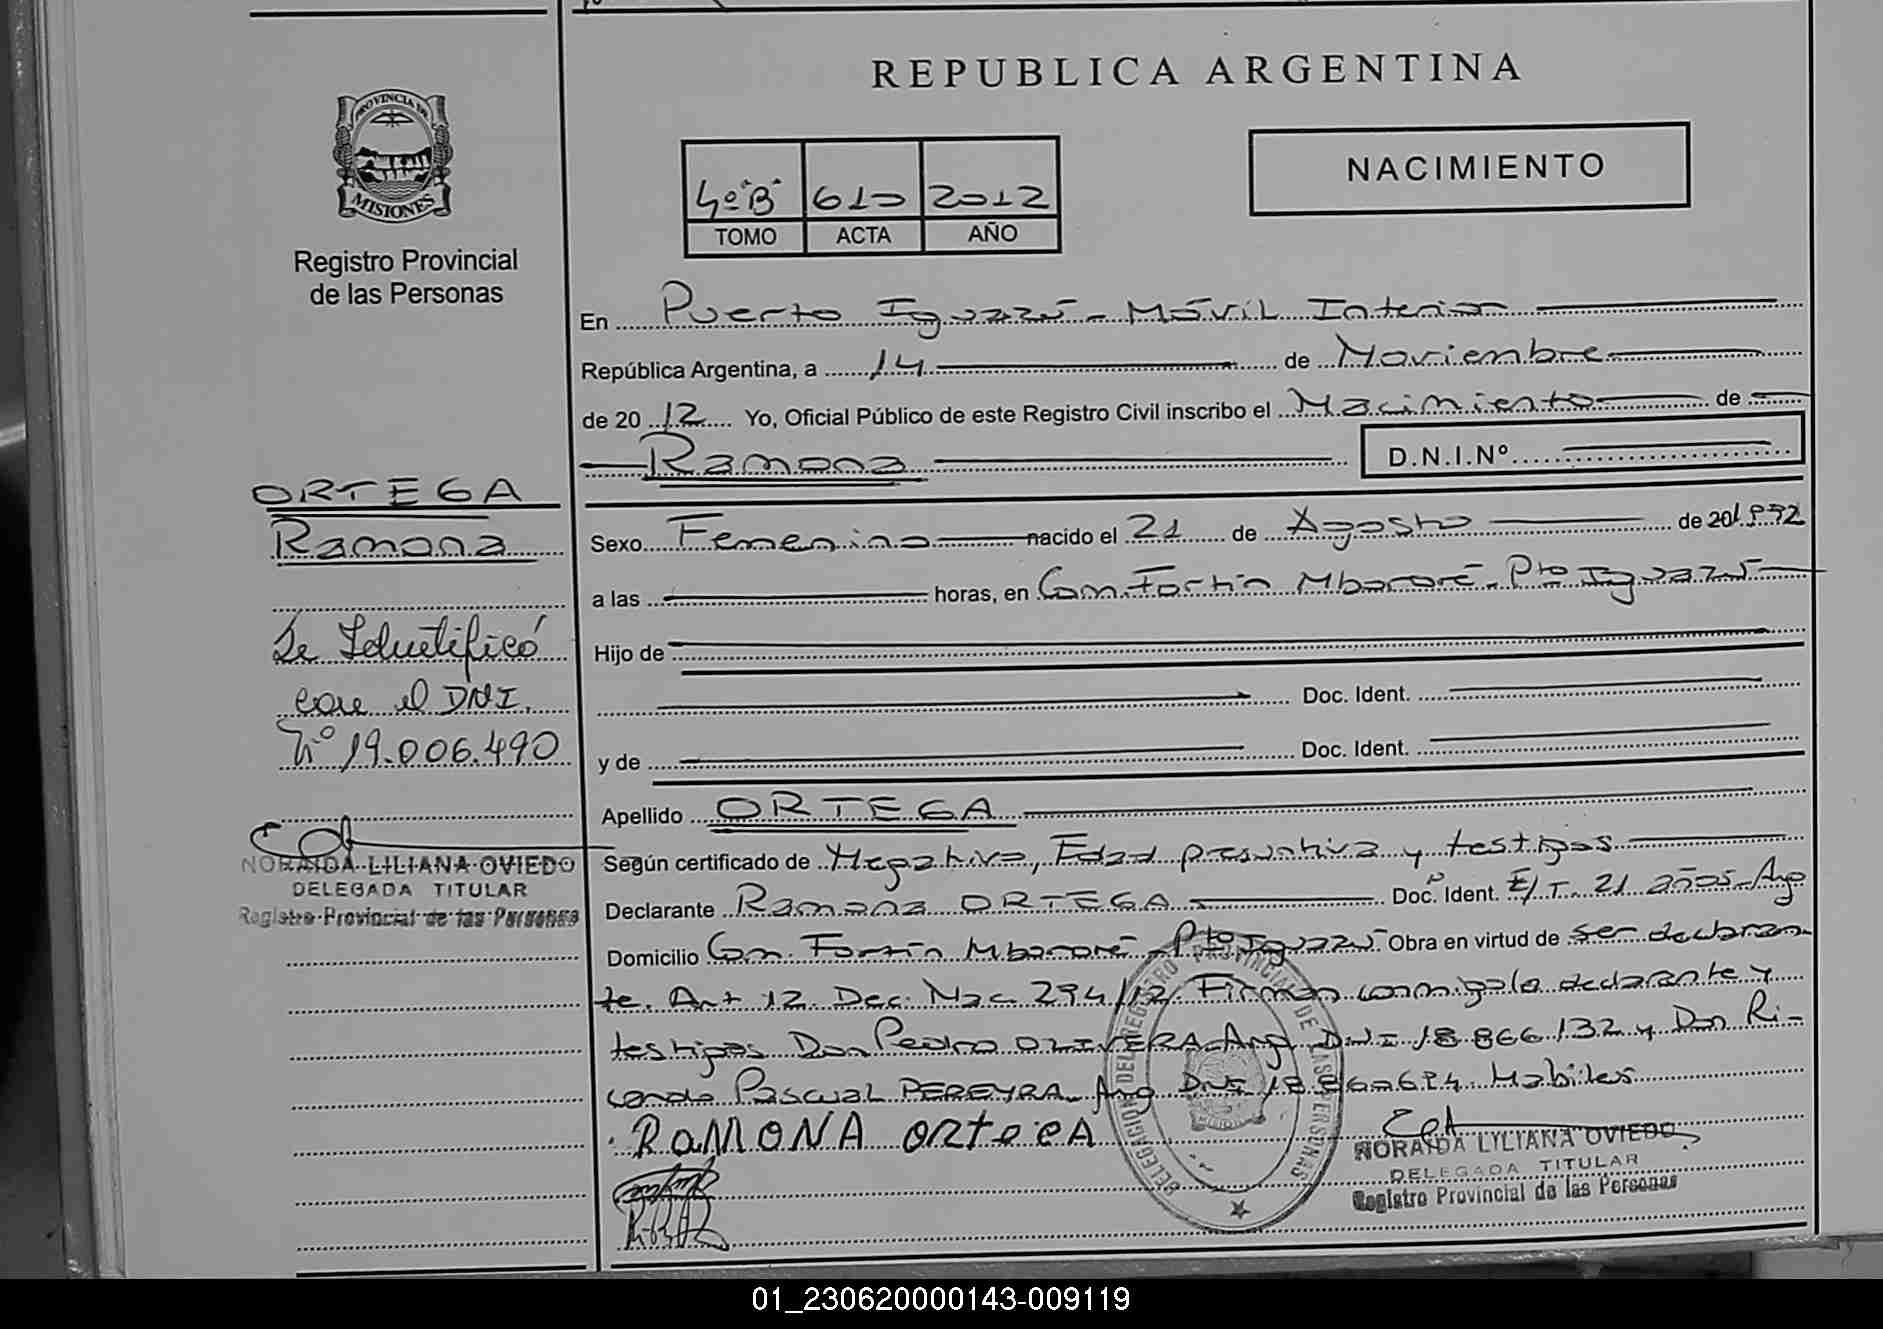 REPUBLICA ARGENTINA
PROVINCIA DE
MISIONES
Registro Provincial
de las Personas
4º"B" 610 2012
TOMO ACTA AÑO
NACIMIENTO
En Puerto Iguazú - Móvil Interior
República Argentina, a 14 de Noviembre
de 2012 Yo, Oficial Público de este Registro Civil inscribo el Nacimiento de
Ramona D.N.I.Nº
ORTEGA
Ramona
Se Identificó
con el DNI.
Nº 19.006.490
NORAIDA LILIANA OVIEDO
DELEGADA TITULAR
Registro Provincial de las Personas
Sexo Femenino nacido el 21 de Agosto de 20 1992
a las horas, en Com. Fortín Mbororé - Pto Iguazú
Hijo de
Doc. Ident.
y de Doc. Ident.
Apellido ORTEGA
Según certificado de Negativo, Edad presuntiva y testigos
Declarante Ramona ORTEGA Doc. Ident. E/T. 21 años - Arg
Domicilio Com. Fortín Mbororé - Pto Iguazú Obra en virtud de ser declaran-
te. Art 12 Dec. Nac 294/12. Firman conmigo la declarante y
testigos Don Pedro OLIVERA - Arg DNI 18.866.132 y Don Ri-
cardo Pascual PEREYRA - Arg DNI Habiles
RAMONA ORTEGA
DELEGACION DEL REGISTRO PROVINCIAL DE LAS PERSONAS
NORAIDA LILIANA OVIEDO
DELEGADA TITULAR
Registro Provincial de las Personas
01_230620000143-009119